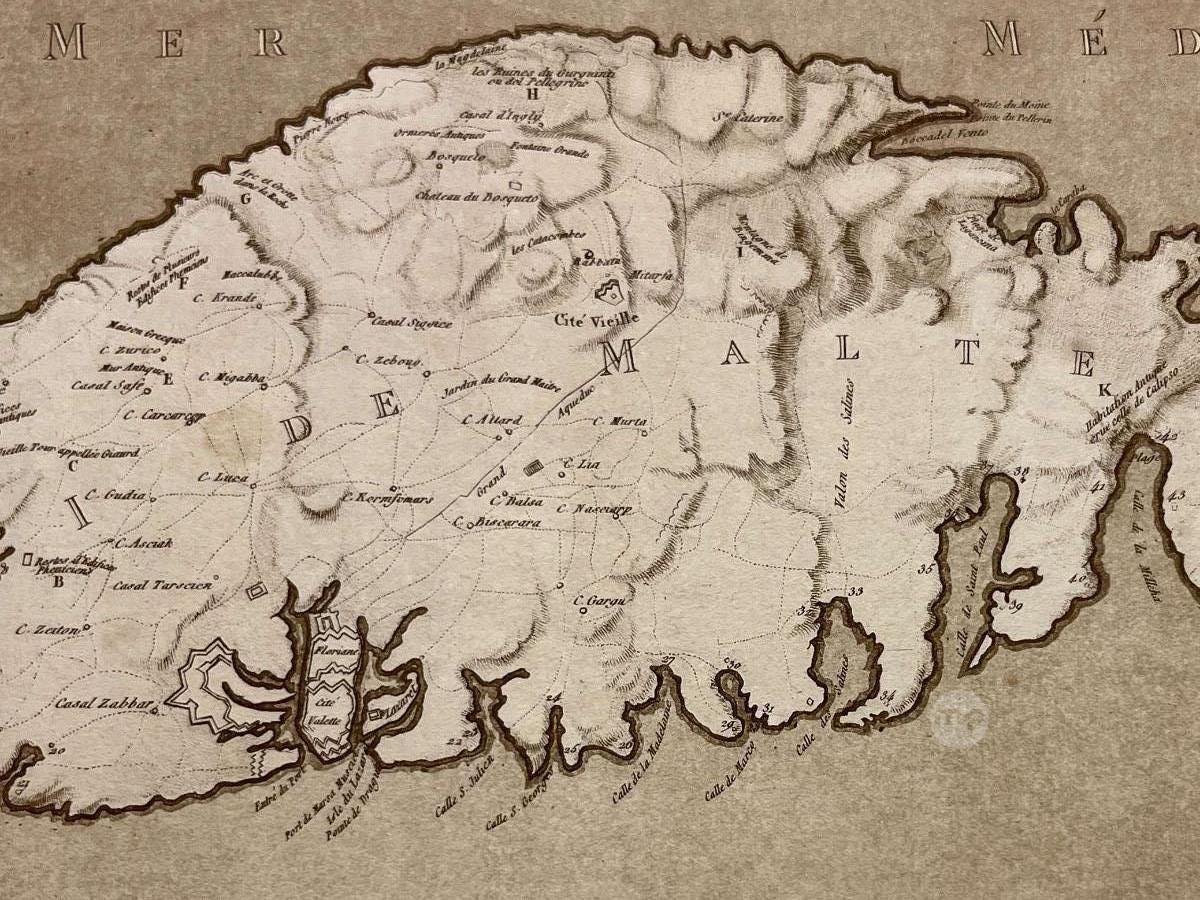 MER
MÉD
la Magdelaine
les Ruines du Gurguinti
ou del Pellegrine
H
Casal d'Ingly
Ormeres Antiques
Fontaine Grande
Bosqueto
Chateau du Bosqueto
Pierre Noire
Ste Caterine
Pointe du Moine
Pointe du Pellerin
Boccadel Vento
Arc et Grotte
dans le Roche
G
les Catacombes
Rabbato
Mitarfa
Cité Vieille
Montagne de
I
Restes de Plusieurs
Edifices Pheniciens
F
Maccalubba
C. Krande
Casal Siggice
Maison Grecque
C. Zurico
Mur Antique
E
Casal Safe
C. Migabba
C. Zeboug
Jardin du Grand Maitre
Grand Aqueduc
C. Attard
C. Murta
C. Lia
C. Balsa
C. Nasciarp
C. Biscarara
C. Kermfomars
I DE MALTE
Valon des Salines
K
Habitation Antique
crue celle de Calipso
C. Carcarcap
Vieille Tour appellée Giaurd
C
C. Luca
C. Gudia
C. Asciak
Restes d'Edifices
Pheniciens
B
Casal Tarscien
C. Zeiton
Casal Zabbar
C. Gargu
Floriane
Cité
Valette
Entré du Port
Port de Marsa Musciet
Isle du Lazaret
Pointe de Dragut
Calle S. Julien
Calle S. George
Calle de la Madelaine
Calle de Marco
Calle des Salines
Calle de Saint Paul
Plage
Calle de la Mélléha
20
22
24
25
26
27
29
30
31
32
33
34
35
37
38
39
40
41
42
43